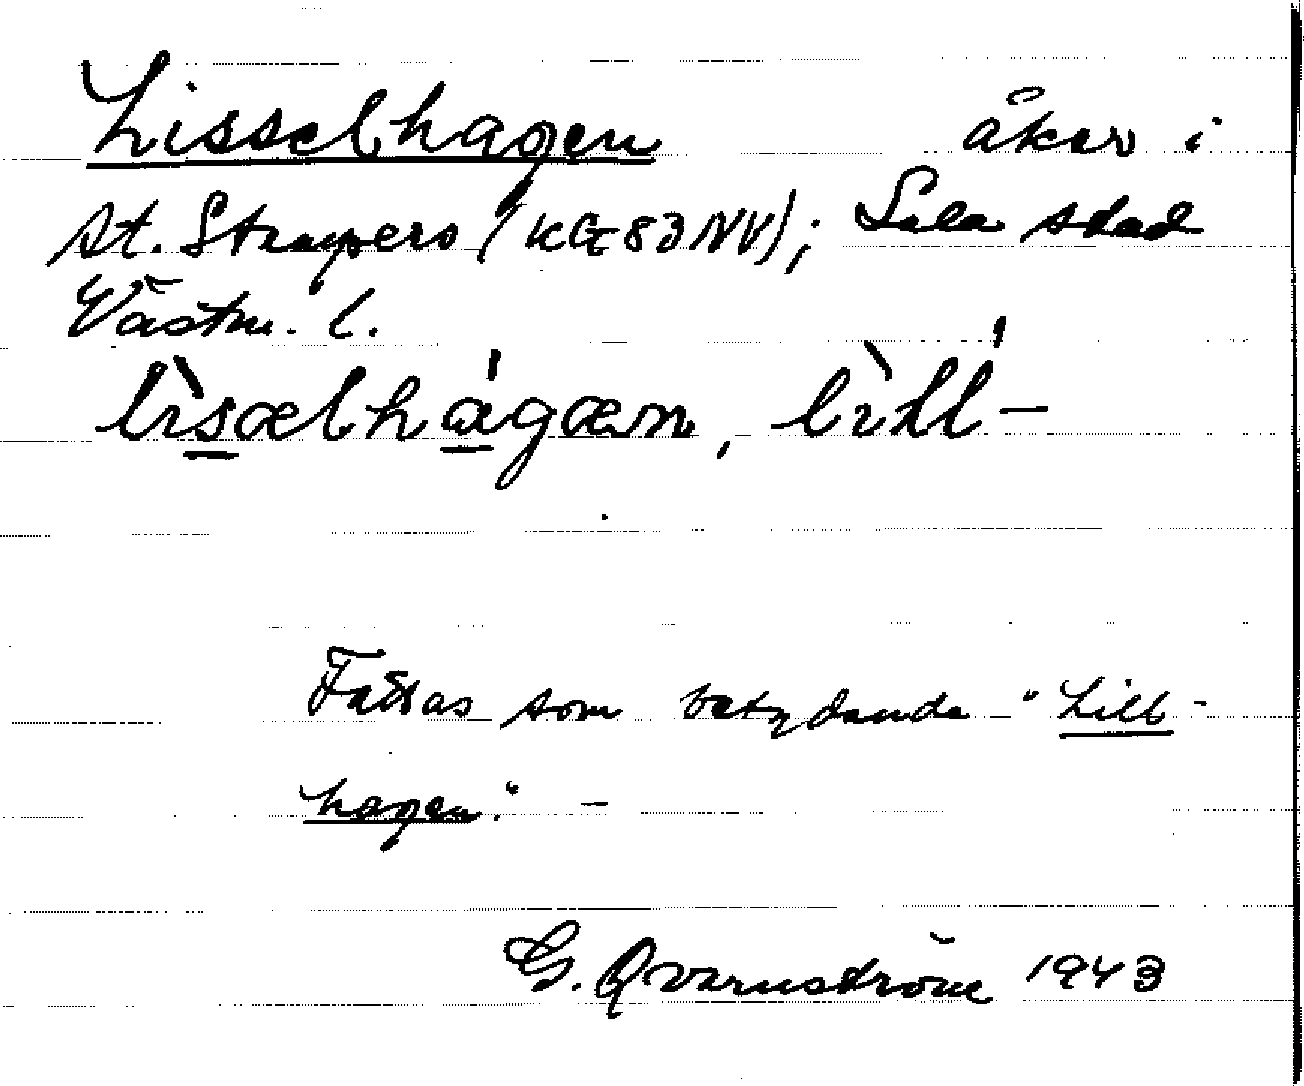 Lisselhagen åker i
St. Strupers (KG 83 NV); Sala stad
Västm. l.
lìsælhágæn, lìll-
Fattas som betydande "Lill-
hagen". -
G. Qvarnström 1943